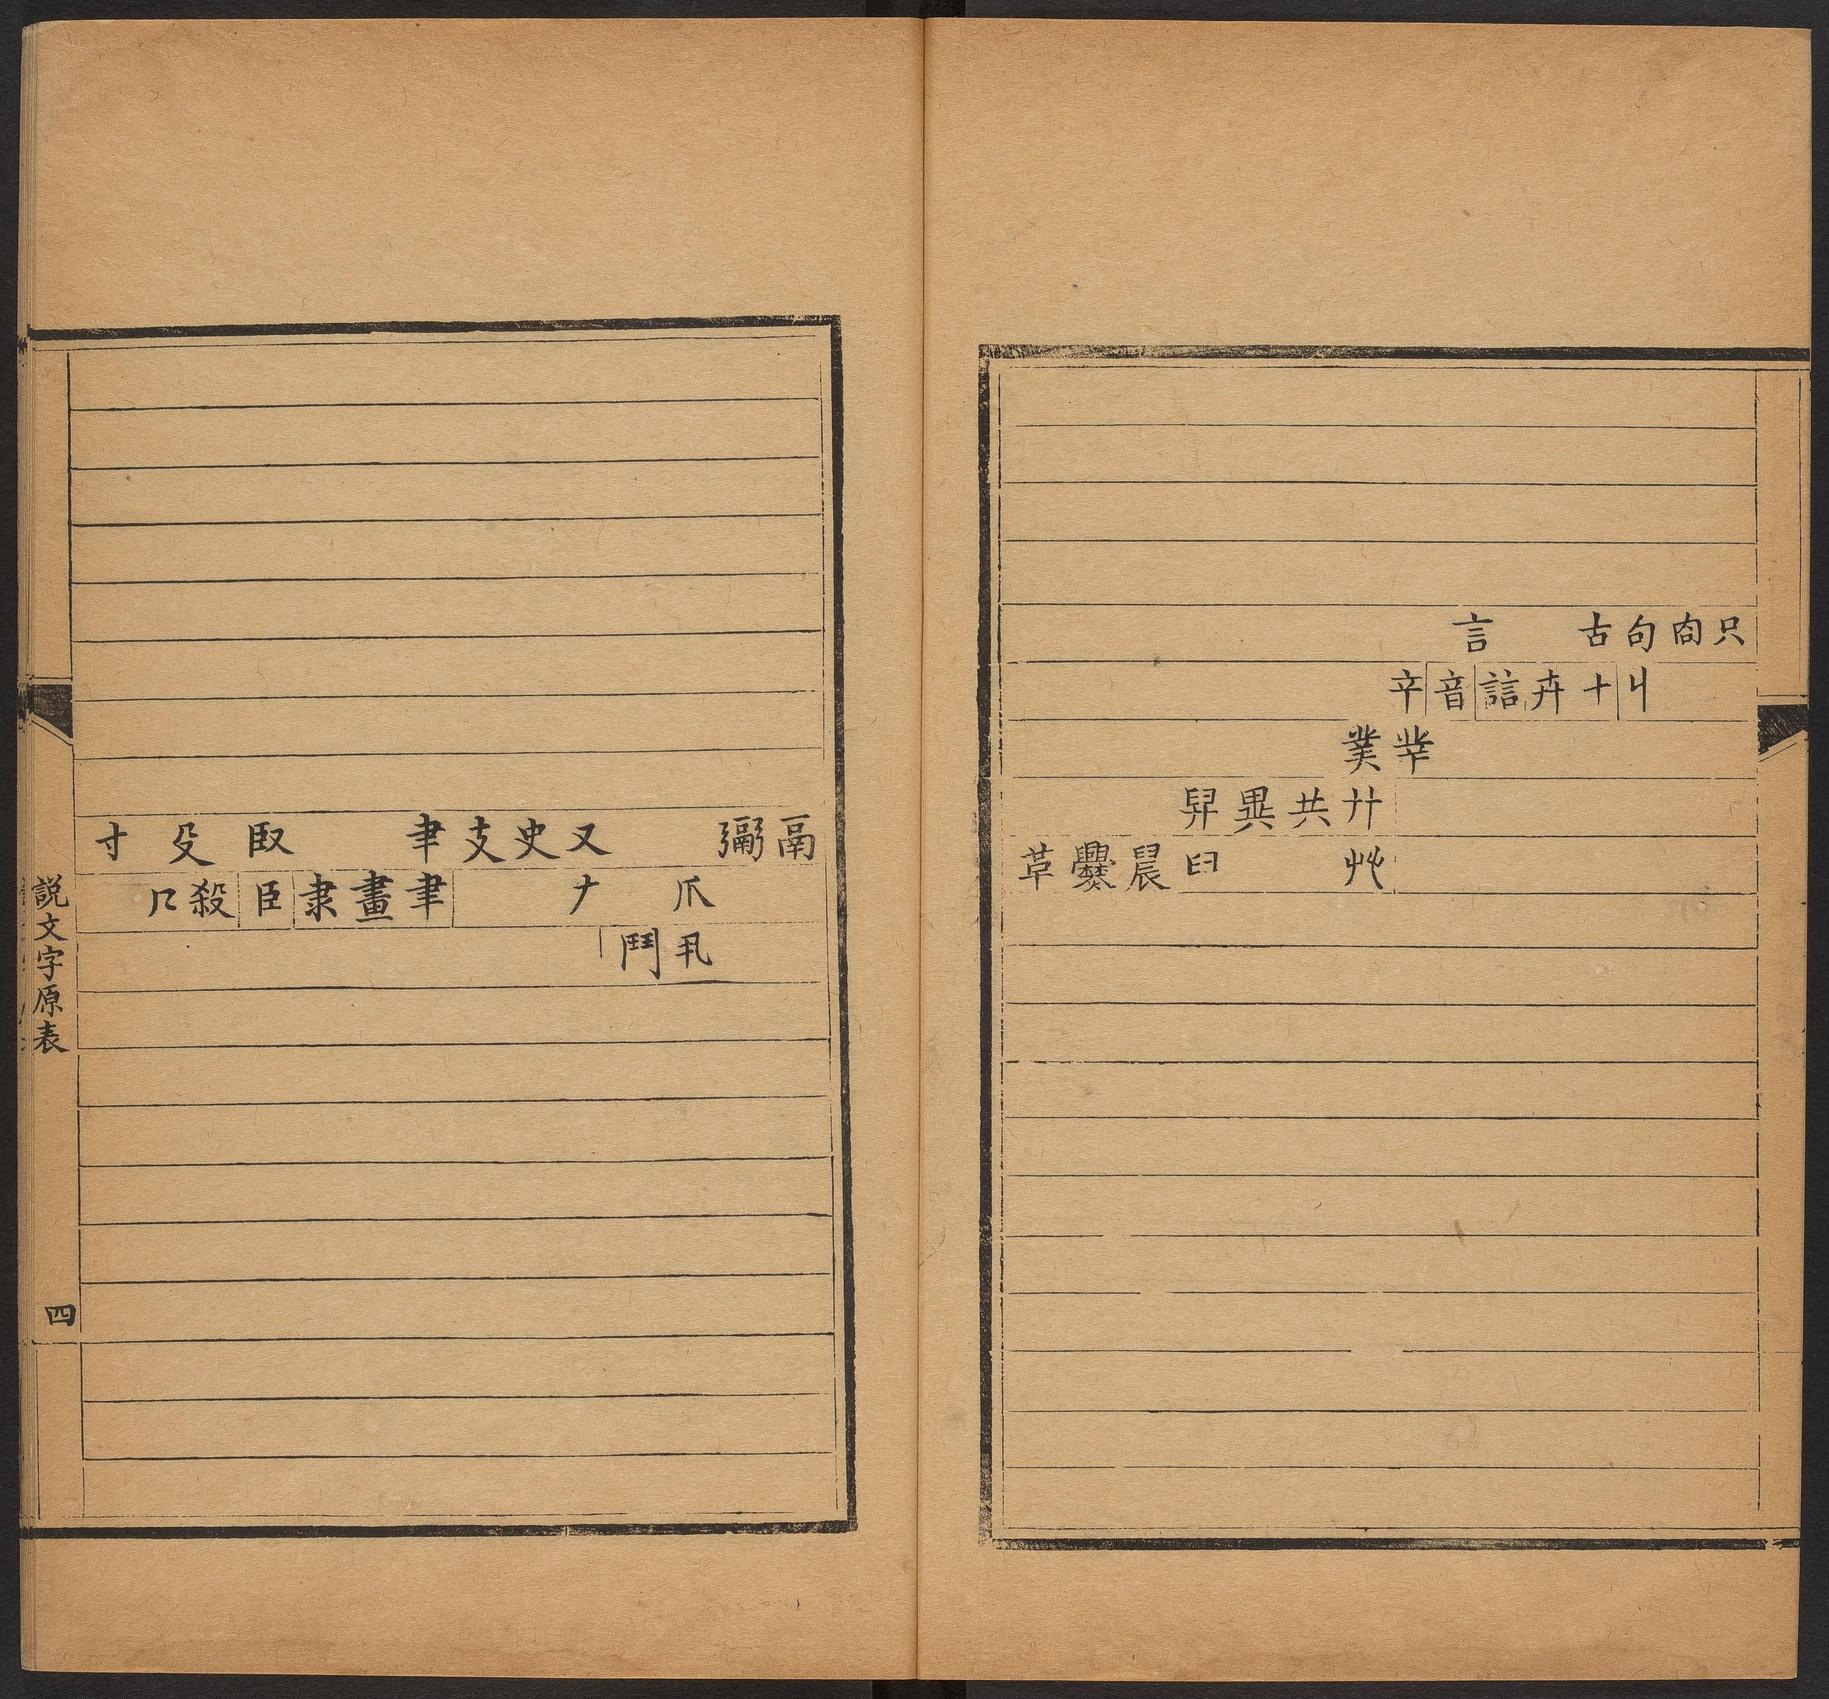 只㕯句古言
丩十卉誩音䇂
丵菐
廾共異舁
𠬜𦥑䢅爨革
鬲䰜又史支𦘒臤殳寸
爪𠂇聿畫隶臣殺𠘧
丮鬥
説文字原表
四